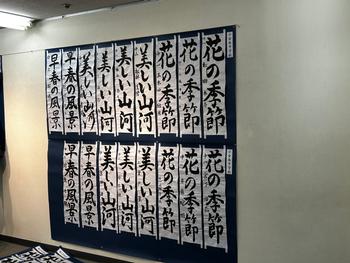 花の季節
花の季節
花の季節
美しい山河
美しい山河
美しい山河
美しい山河
早春の風景
早春の風景
花の季節
花の季節
花の季節
美しい山河
美しい山河
美しい山河
早春の風景
早春の風景